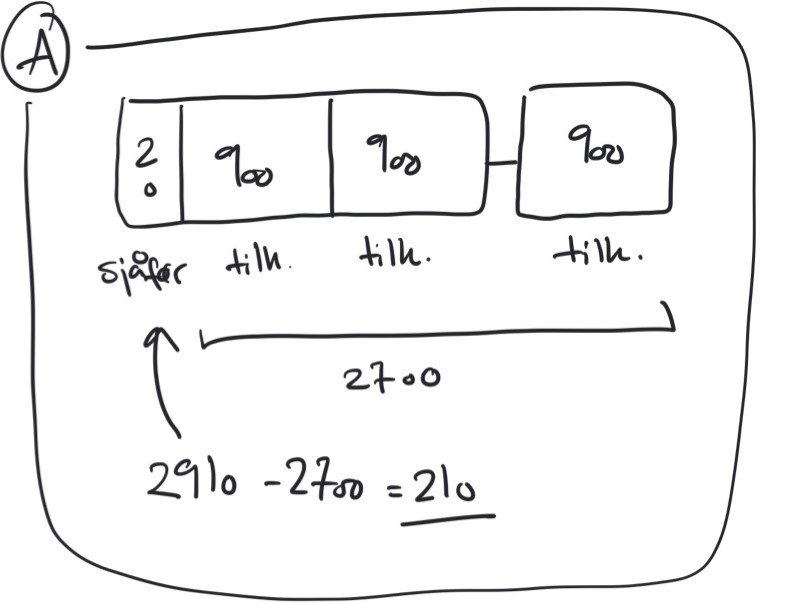 A
2 900 900 900
0
sjåfør tilh. tilh. tilh.
2700
2910 - 2700 = 210